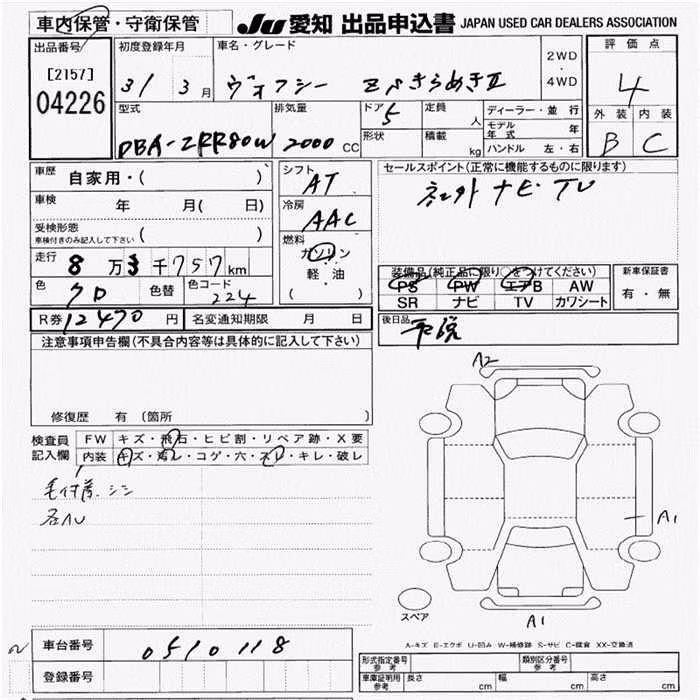 車内保管・守衛保管
JU 愛知 出品申込書 JAPAN USED CAR DEALERS ASSOCIATION
出品番号
[2157]
04226
初度登録年月
31 3月
車名・グレード
ヴォクシー ZSきらめきⅡ
2WD
・
4WD
評価点
4
外装 内装
B C
型式
DBA-ZRR80W
排気量
2000 CC
ドア
5
形状
定員
人
積載
kg
ディーラー・並行
モデル年式 年
ハンドル 左・右
車歴
自家用・( )
車検 年 月( 日)
受検形態
車検付きのみ記入して下さい ( )
走行 8万3千757km
色 クロ 色替 色コード 224
R券 12470円 名変通知期限 月 日
シフト
AT
冷房
AAC
燃料
ガソリン
軽・油
( )
セールスポイント(正常に機能するものに限ります)
ナビ TV
装備品(純正品に限り○をつけてください)
PS PW エアB AW
SR ナビ TV カワシート
新車保証書
有・無
後日品
注意事項申告欄(不具合内容等は具体的に記入して下さい)
修復歴 有(箇所 )
検査員記入欄
FW キズ・飛石・ヒビ割・リペア跡・X要
内装 キズ・汚レ・コゲ・穴・スレ・キレ・破レ
A2
A1
A1
スペア
A-キズ E-エクボ U-凹み W-補修跡 S-サビ C-腐食 XX-交換済
車台番号 0510118
登録番号
形式指定番号 参考
類別区分番号 参考
車庫証明用 参考 長さ cm 幅 cm 高さ cm